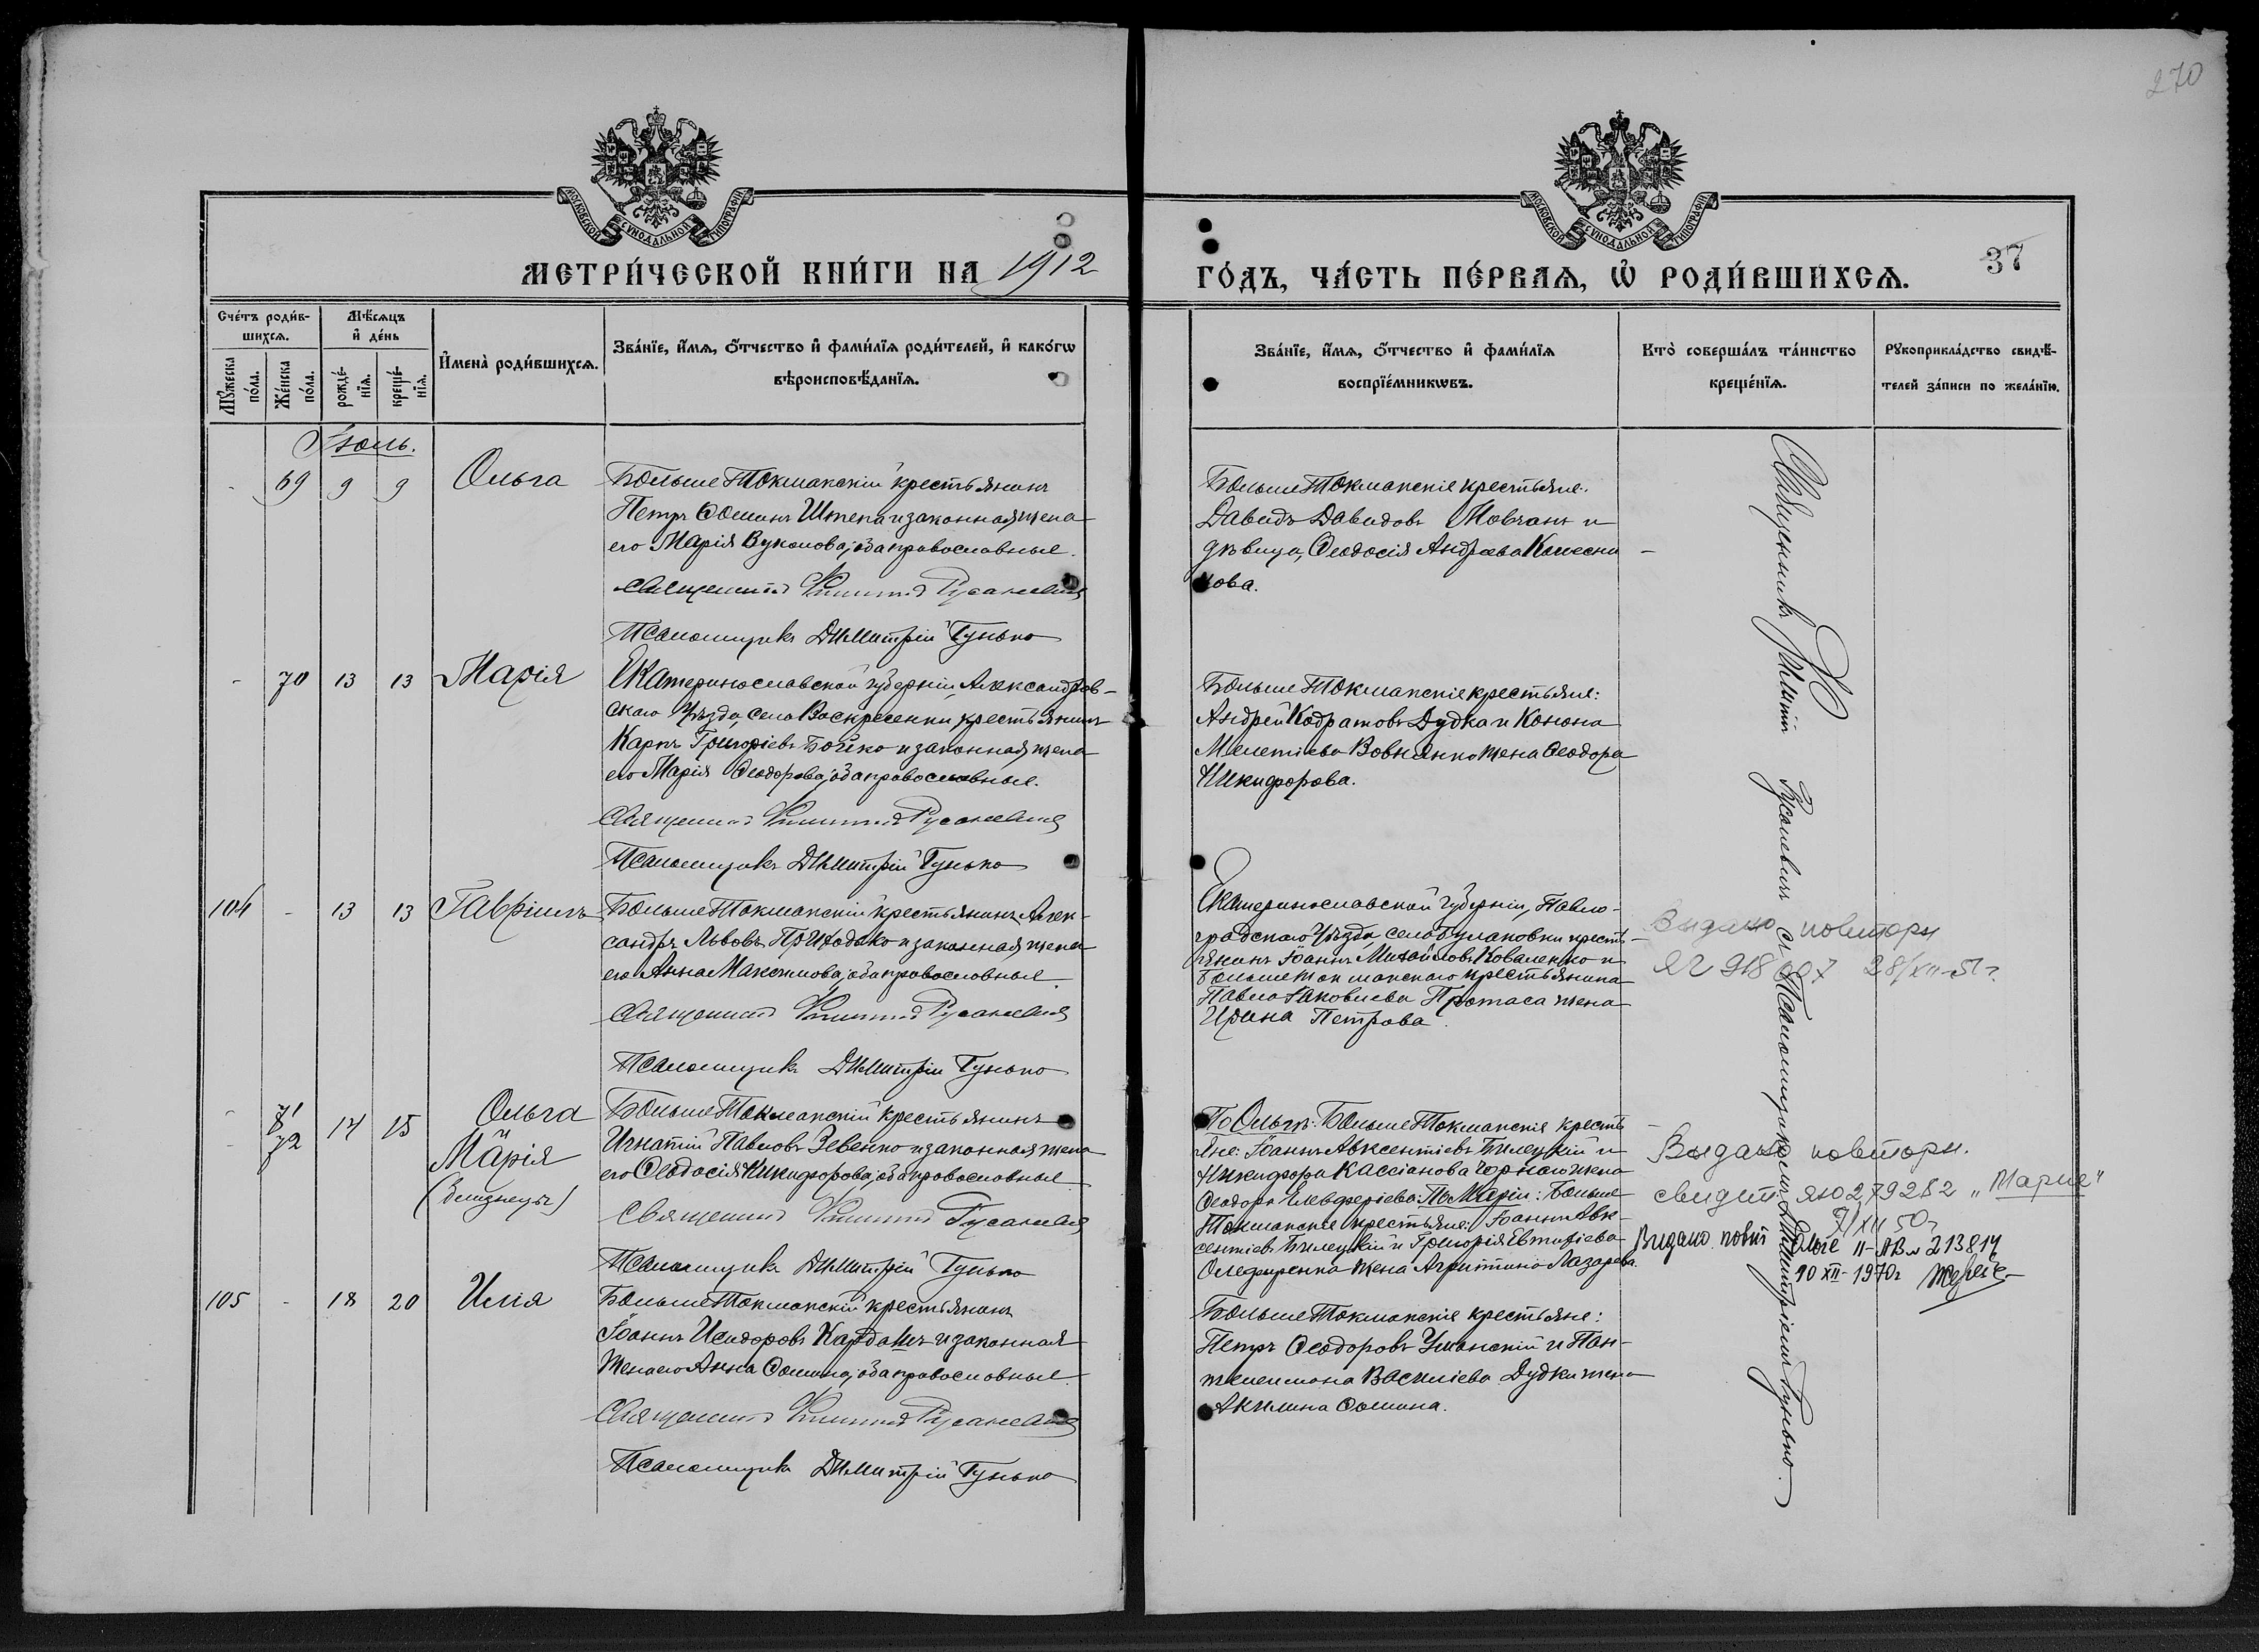 270
МОСКОВСКОЙ СѴНОДАЛЬНОЙ ТИПОГРАФІИ
МОСКОВСКОЙ СѴНОДАЛЬНОЙ ТИПОГРАФІИ
МЕТРИ́ЧЕСКОЙ КНИ́ГИ НА 1912
ГО́ДЪ, ЧА́СТЬ ПЕ́РВАѦ, Ѡ҆ РОДИ́ВШИХСѦ.
37
Сче́тъ роди́в-
шихсѧ.
Мꙋ́жеска по́ла.
Же́нска по́ла.
Мѣ́сѧцъ
и҆ де́нь
рожде́-
нїѧ.
креще́-
нїѧ.
И҆мена̀ роди́вшихсѧ.
Зва́нїе, и҆́мѧ, ѻ҆́тчество и҆ фами́лїѧ роди́телей, и҆ како́гѡ
вѣроисповѣ́данїѧ.
Зва́нїе, и҆́мѧ, ѻ҆́тчество и҆ фами́лїѧ
воспрїе́мникѡвъ.
Кто̀ соверша́лъ та́инство
креще́нїѧ.
Рꙋкоприкла́дство свидѣ́-
телей за́писи по жела́нїю.
Іюль.
- 69 9 9 Ольга
Больше Токмакскій крестьянинъ
Петръ Ѳоминъ Штепа и законная жена
его Марія Вуколова, оба православные.
Священникъ Филиппъ Русаневичъ
Псаломщикъ Димитрій Гунько
Больше Токмакскіе крестьяне:
Давидъ Давидовъ Мовчанъ и
дѣвица, Ѳеодосія Андреева Колесни-
кова.
- 70 13 13 Марія
Екатеринославской губерніи, Александров-
скаго уѣзда, села Воскресенки крестьянинъ
Карпъ Григоріевъ Бойко и законная жена
его Марія Ѳеодорова, оба православные.
Священникъ Филиппъ Русаневичъ
Псаломщикъ Димитрій Гунько
Больше Токмакскіе крестьяне:
Андрей Кодратовъ Дудка и Конона
Мелетіева Вовнянко жена Ѳеодора
Никифорова.
104 - 13 13 Гавріилъ
Больше Токмакскій крестьянинъ Алек-
сандръ Львовъ Приходько и законная жена
его Анна Максимова, оба православные.
Священникъ Филиппъ Русаневичъ
Псаломщикъ Димитрій Гунько
Екатеринославской губерніи, Павло-
градскаго уѣзда, села Булаховки кресть-
янинъ Іоаннъ Михайловъ Коваленко и
Больше Токмакскаго крестьянина
Павла Іаковлева Протаса жена
Ирина Петрова.
Видано повторн
28/XII-51 г.
- 71
- 72 14 15 Ольга
и
Марія
(близнецы)
Больше Токмакскій крестьянинъ
Игнатій Павловъ Зевенко и законная жена
его Ѳеодосія Никифорова, оба православные
Священникъ Филиппъ Русаневичъ
Псаломщикъ Димитрій Гунько
По Ольгѣ: Больше Токмакскіе кресть-
яне: Іоаннъ Авксентіевъ Билецкій и
Никифора Кассіанова Чорнаго жена
Ѳеодора Елевферіева. По Маріи: Больше
Токмакскіе крестьяне: Іоаннъ Авк-
сентіевъ Билецкій и Григорія Евтихіева
Олефиренка жена Агриппина Лазарева.
Видано повторн.
свидет. ЯЮ 279282 "Марие"
7/XII 50 г
Видано повт Ользе II-АВ № 213814
10 XII-1970г
105 - 18 20 Илія
Больше Токмакскій крестьянинъ
Іоаннъ Исидоровъ Кардашъ и законная
жена его Анна Ѳомина, оба православные.
Священникъ Филиппъ Русаневичъ
Псаломщикъ Димитрій Гунько
Больше Токмакскіе крестьяне:
Петръ Ѳеодоровъ Уманскій и Пан-
телеимона Василіева Дудки жена
Акилина Ѳомина.
Священникъ Филиппъ Русаневичъ съ Псаломщикомъ Димитріемъ Гунько.